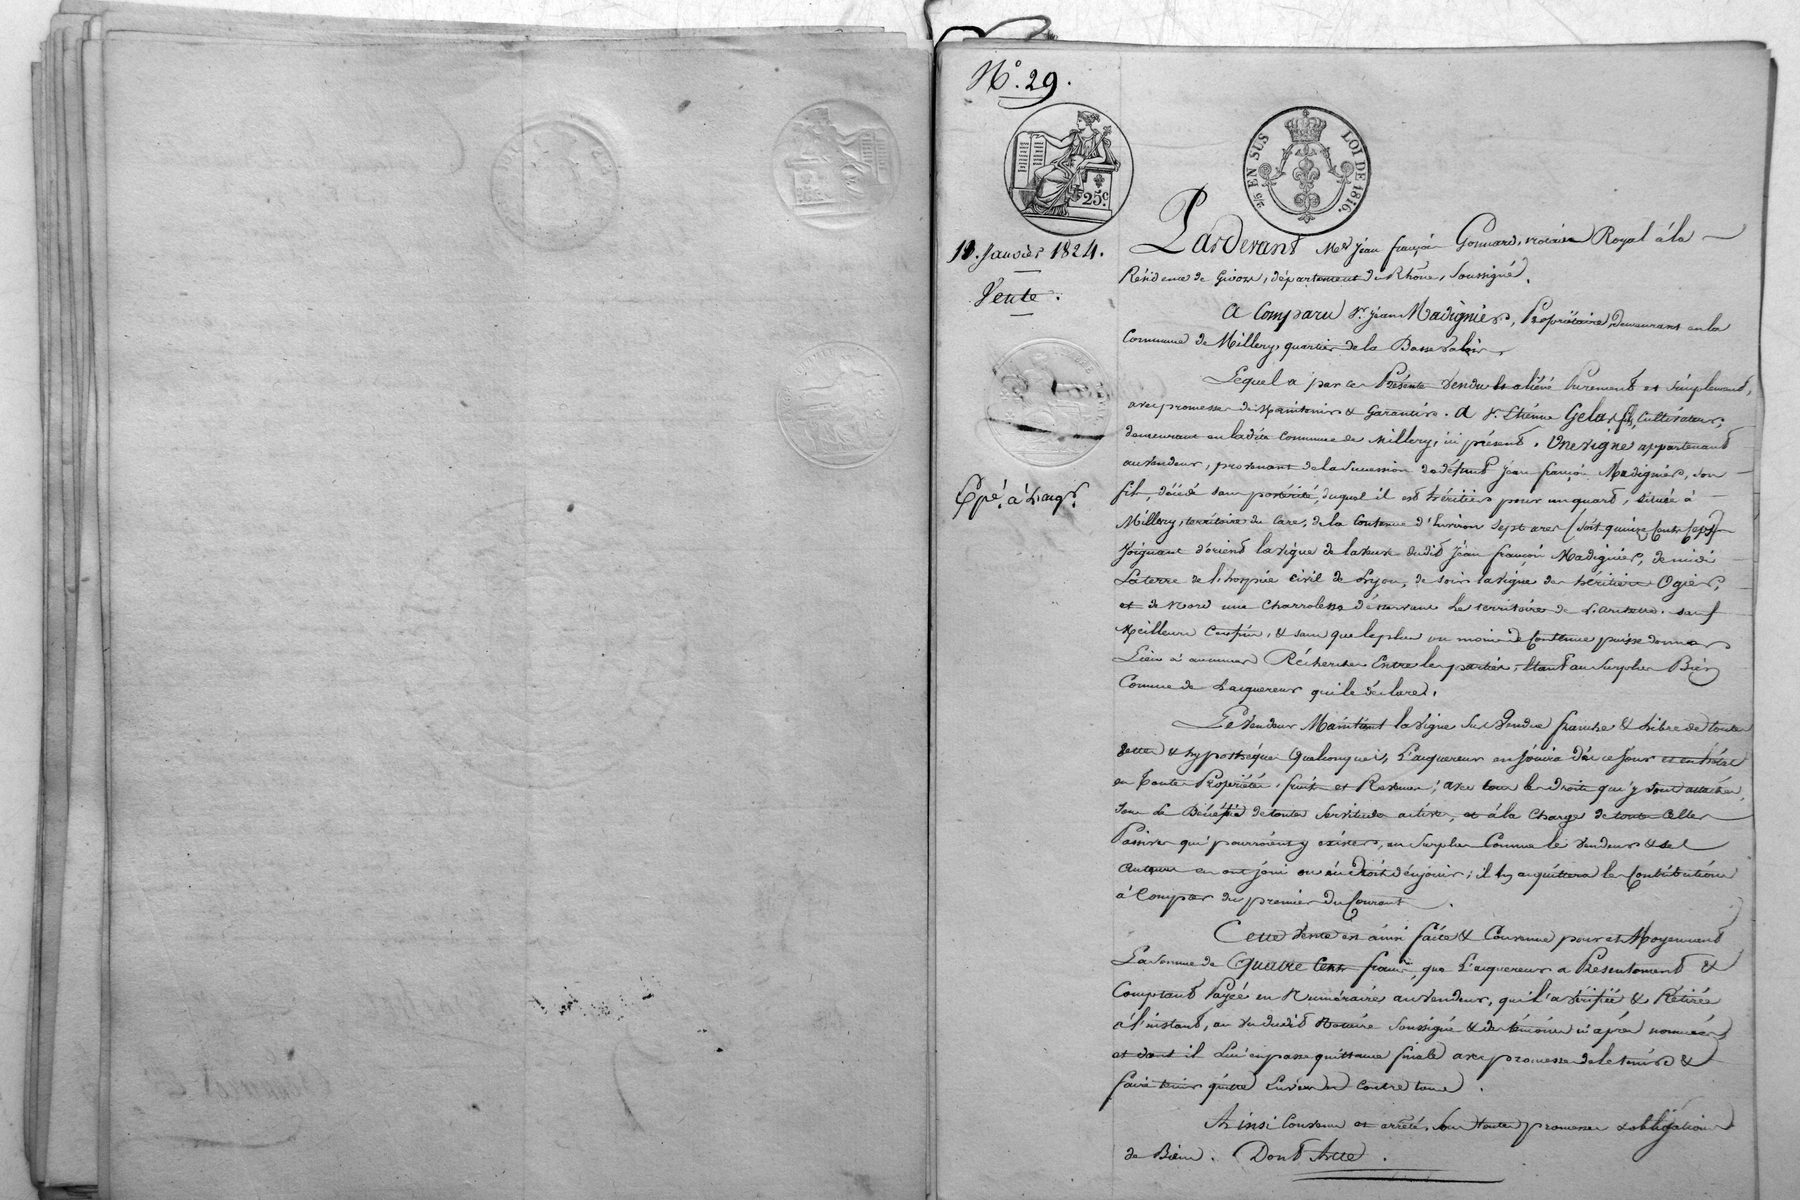 N.° 29.
25 c.
2/5 EN SUS LOI DE 1816.
19. Janvier 1824.
Vente.
Expé. à l'acqr.
Pardevant Me. Jean françois Gonnard, notaire Royal à la
Résidence de Givors, département du Rhône, soussigné.
A Comparu Sr. Jean Madignier, Propriétaire, demeurant en la
Commune de Millery, quartier de la Basse
Lequel a par ces Présentes vendu et aliéné Purement et simplement,
avec promesse de Maintenir & Garantir. A Sr. Etienne Gelas fils, Cultivateur,
demeurant en ladite Commune de Millery, ici présent. Une vigne appartenant
au vendeur, provenant de la succession de défunt Jean françois Madignier, son
fils, décédé sans postérité, duquel il est héritier pour un quart, située à
Millery, territoire du Care, de la Contenue d'Environ sept ares
Joignant d'orient la vigne de la veuve dudit Jean françois Madignier, de midi
La terre de l'hospice civil de Lyon, de soir la vigne des héritiers Ogier,
et de Nord une Charrolesse desservant le territoire de sauf
Meilleurs Confins, & sans que le plus ou moins de Contenue puisse donner
Lieu à aucunes Recherches Entre les parties, Etant au Surplus Bien
Connue de L'acquereur qui le déclare.
Le vendeur Maintient la vigne sus vendue franche & Libre de toutes
dettes & hypothéques Quelconques, L'acquereur en Jouira dès ce Jour
en toute Propriété, fruits et Revenus; avec tous les Droits qui y sont attachés,
sous le Bénéfice de toutes servitudes actives, et à la Charge de toutes Celles
Passives qui pourroient y exister, au Surplus Comme le vendeur & ses
Auteurs en ont joui ou eu Droit d'en jouir; il en acquittera les Contributions
à Compter du premier du Courant.
Cette vente est ainsi faite & Convenue pour et Moyennant
La somme de Quatre Cents francs, que L'acquereur a Présentement &
Comptant Payée en Numéraire au vendeur, qui l'a vérifiée & Retirée
à l'instant, au vu dudit Notaire Soussigné & des témoins ci après nommés
et dont il Lui en passe quittance finale avec promesse de le tenir &
faire tenir quitte Envers & Contre tous.
Ainsi Convenu et arrêté, sous toutes promesses & obligations
de Biens. Dont Acte.